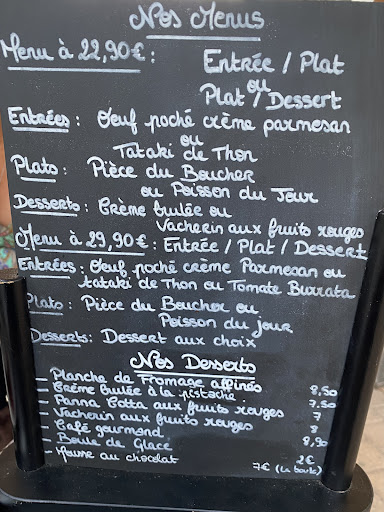 Nos Menus
Menu à 22,90€ : Entrée / Plat
ou
Plat / Dessert
Entrées : Oeuf poché crème parmesan
ou
Tataki de Thon
Plats : Pièce du Boucher
ou Poisson du Jour
Desserts : Crème brulée ou
Vacherin aux fruits rouges
Menu à 29,90€ : Entrée / Plat / Dessert
Entrées : Oeuf poché crème Parmesan ou
tataki de Thon ou Tomate Burrata
Plats : Pièce du Boucher ou
Poisson du jour
Desserts: Dessert aux choix
Nos Desserts
- Planche de Fromage affinés 8,50
- Crème brulée à la pistache 7,50
- Panna Cotta aux fruits rouges 7
- Vacherin aux fruits rouges 8
- Café gourmand 8,90
- Boule de Glace 2€
- Mousse au chocolat 7€ (la boule)